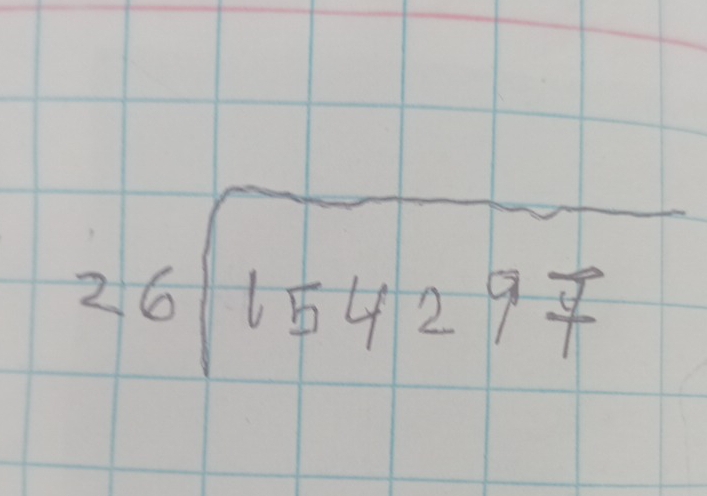 26 154297